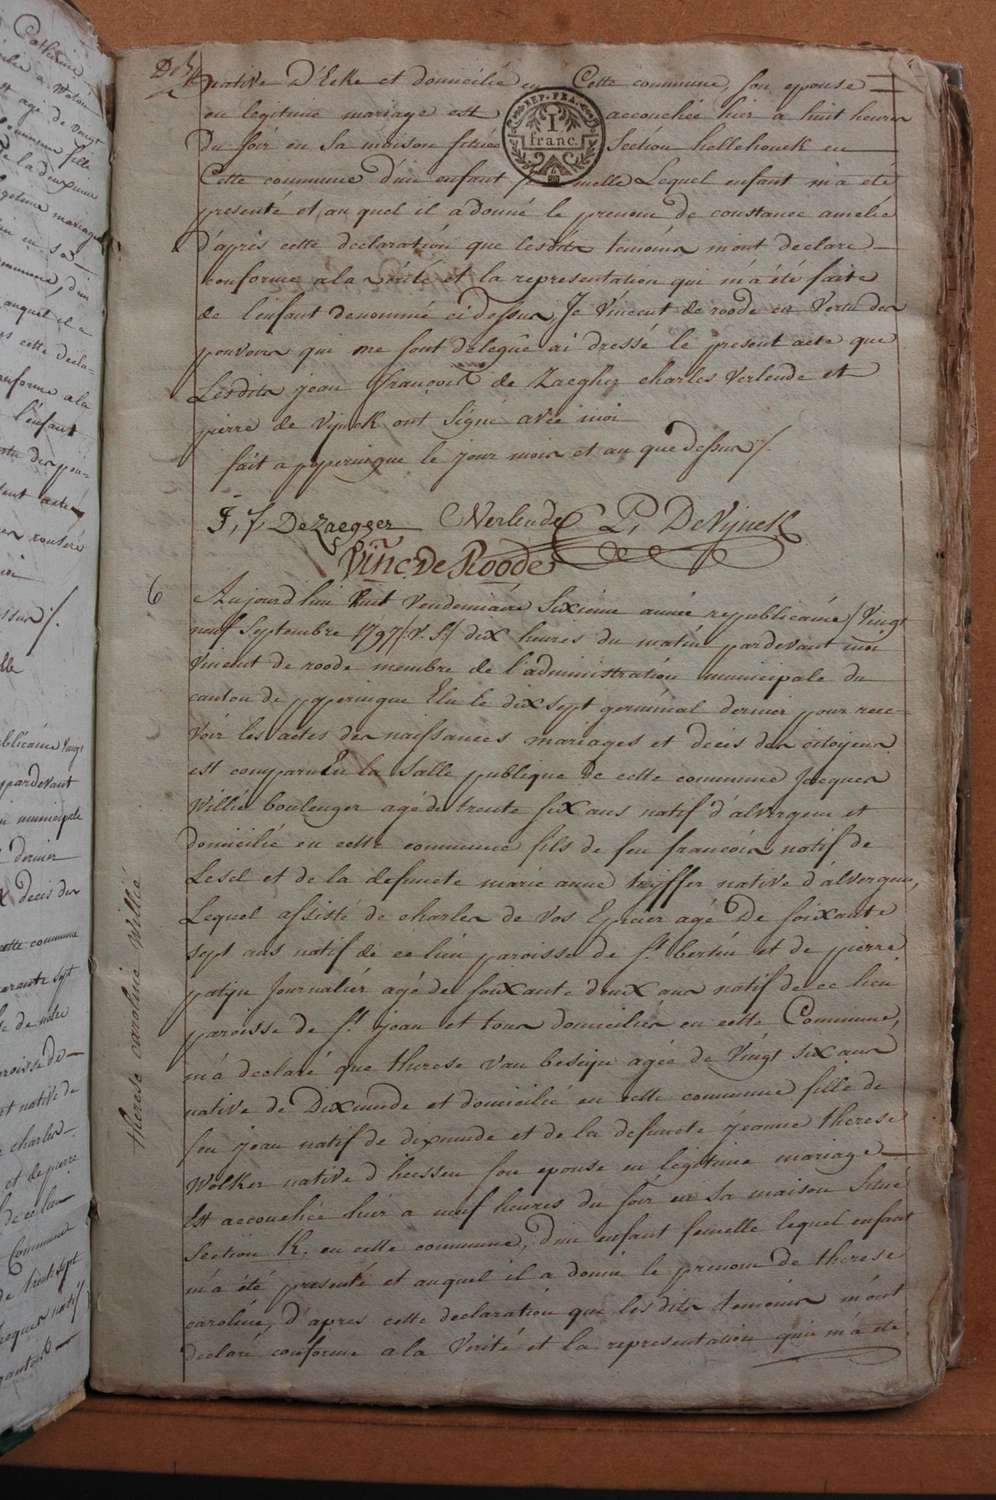 native D'Ecke et domicilié en Cette commune, son epouse
en legitime mariage est accouchée hier a huit heures
Du soir en sa maison sitüée Section hellehouck en
Cette commune d'un enfant femelle Lequel enfant m'a été
presenté et auquel il a donné le prenom de constance amelie
D'après cette declaration que lesdits temoins m'ont declaré
conforme a la vérité et la representation qui m'a été faite
de l'enfant denommé ci dessus, Je Vincent de roode en Vertu des
pouvoirs qui me sont delegué ai dressé le present acte que
Lesdits jean françois de Zaegher charles Verlende et
pierre de Vijnck ont Signé avec moi
fait a poperingue le jour mois et an que dessus /.
REP. FRA.
1
franc.
J, f, DeZaegger CVerlende P, DeVijnck
Vinc. De Roode
6
Aujourd'hui huit Vendemiaire Sixieme année republicaine / Vingt
neuf Septembre 1797/. V. S./ dix heures du matin pardevant moi
Vincent de roode membre de l'administration municipale du
canton de poperingue Elu le dix sept germinal dernier pour rece-
Voir les actes des naissances mariages et décès des citoyens
est comparu En la Salle publique de cette commune Jacques
Willie boulenger agé de trente six ans natif d'alveringem et
domicilié en cette commune fils de feu françois natif de
Lesel et de la defuncte marie anne tryffer native d'alveringue,
Lequel assisté de charles de Vos Epicier agé De soixante
sept ans natif de ce lieu paroisse de St. bertin et de pierre
patijn Journalier agé de soixante deux ans natif de ce lieu
paroisse de St. jean et tous domiciliés en cette Commune,
m'a declaré que therese Van besiyn agée de Vingt six ans
native de Dixmude et domicilié en cette commune fille de
feu jean natif de dixmude et de la defuncte jeanne therese
Wolker native d'heussen son epouse en legitime mariage
Est accouchée hier a neuf heures du soir en sa maison Situé
Section K. en cette commune, d'un enfant femelle lequel enfant
m'a été presenté et auquel il a donné le prenom de therese
caroline, d'après cette declaration que lesdits temoins m'ont
declaré conforme a la Vérité et la representation qui m'a été
therese caroline Willié